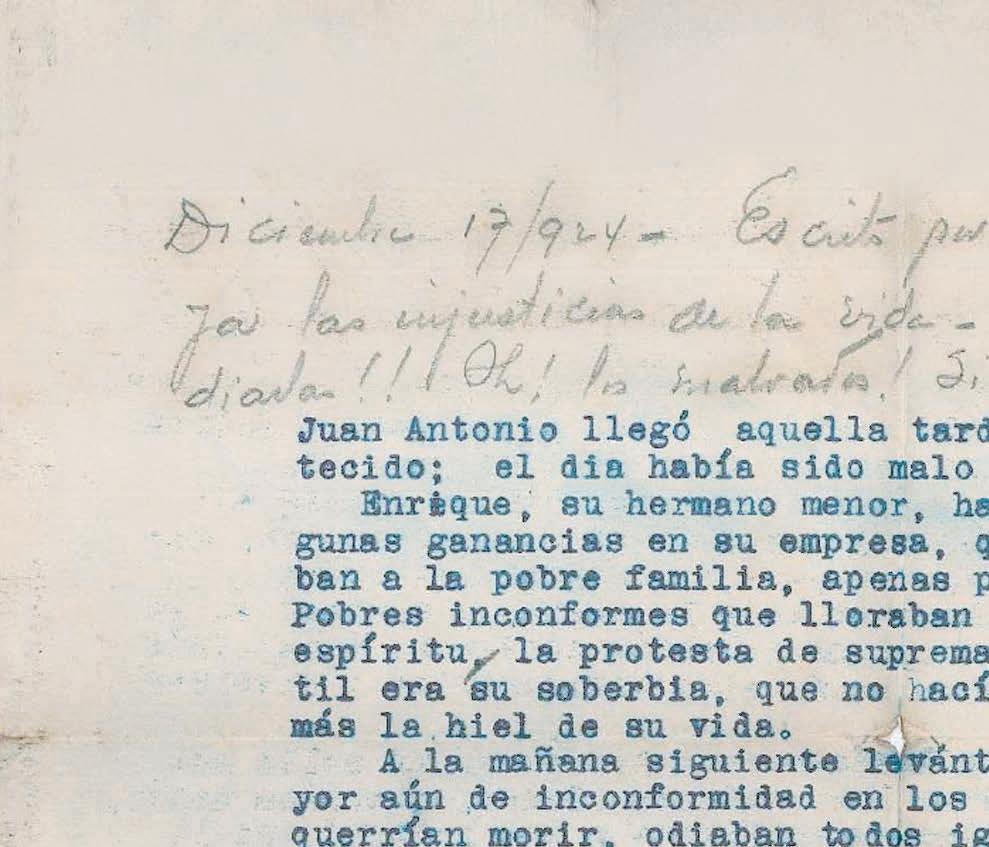 Diciembre 17/924 - Escrito por
ya las injusticias de la vida -
diadas!!! Oh! los malvados! Si
Juan Antonio llegó aquella tard
tecido; el dia había sido malo
Enrique, su hermano menor, ha
gunas ganancias en su empresa, q
ban a la pobre familia, apenas p
Pobres inconformes que lloraban
espíritu, la protesta de suprema
til era su soberbia, que no hací
más la hiel de su vida.
A la mañana siguiente levánt
yor aún de inconformidad en los
querrían morir, odiaban todos ig